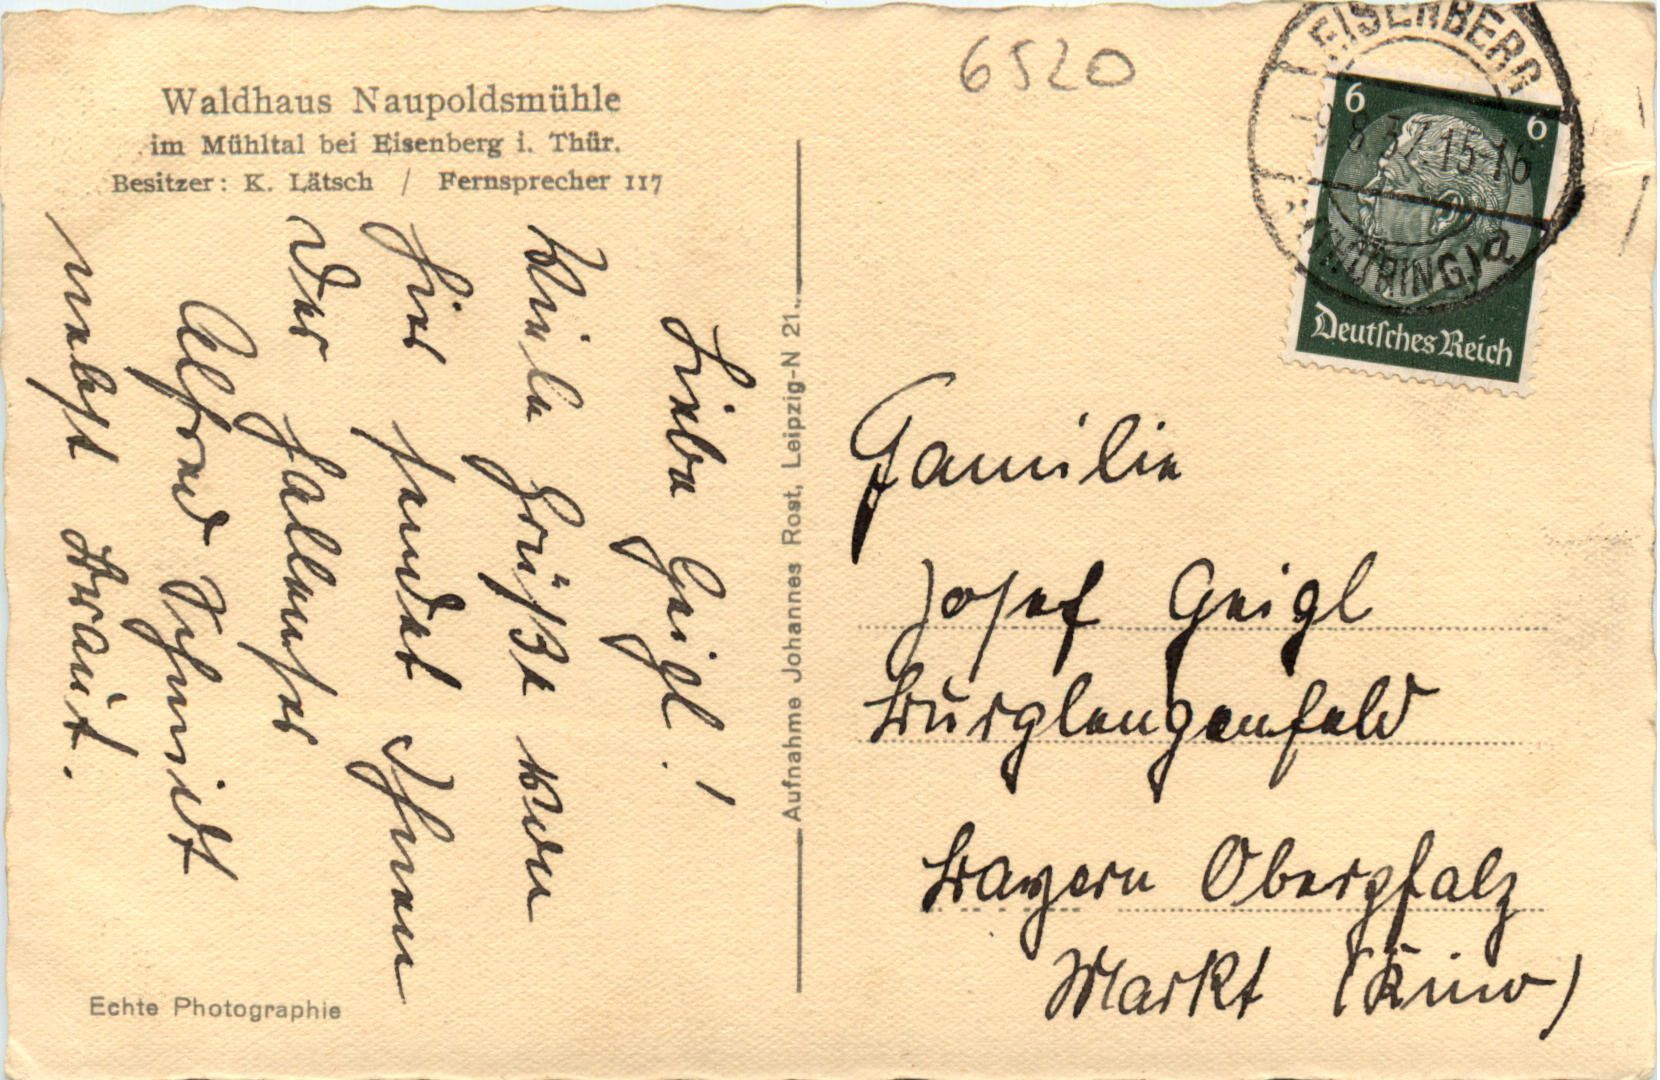 Waldhaus Naupoldsmühle
im Mühltal bei Eisenberg i. Thür.
Besitzer: K. Lätsch / Fernsprecher 117
Liebe Geigl!
Viele Grüße von
hier sendet Ihnen
der
Alfred Schmidt
nebst Braut.
Echte Photographie
Aufnahme Johannes Rost, Leipzig-N 21.
6520
EISENBERG
9.8.37.15-16
(THÜRING) a
6 6
Deutsches Reich
Familie
Josef Geigl
Burglengenfeld
Bayern Oberpfalz
Markt (Kino)